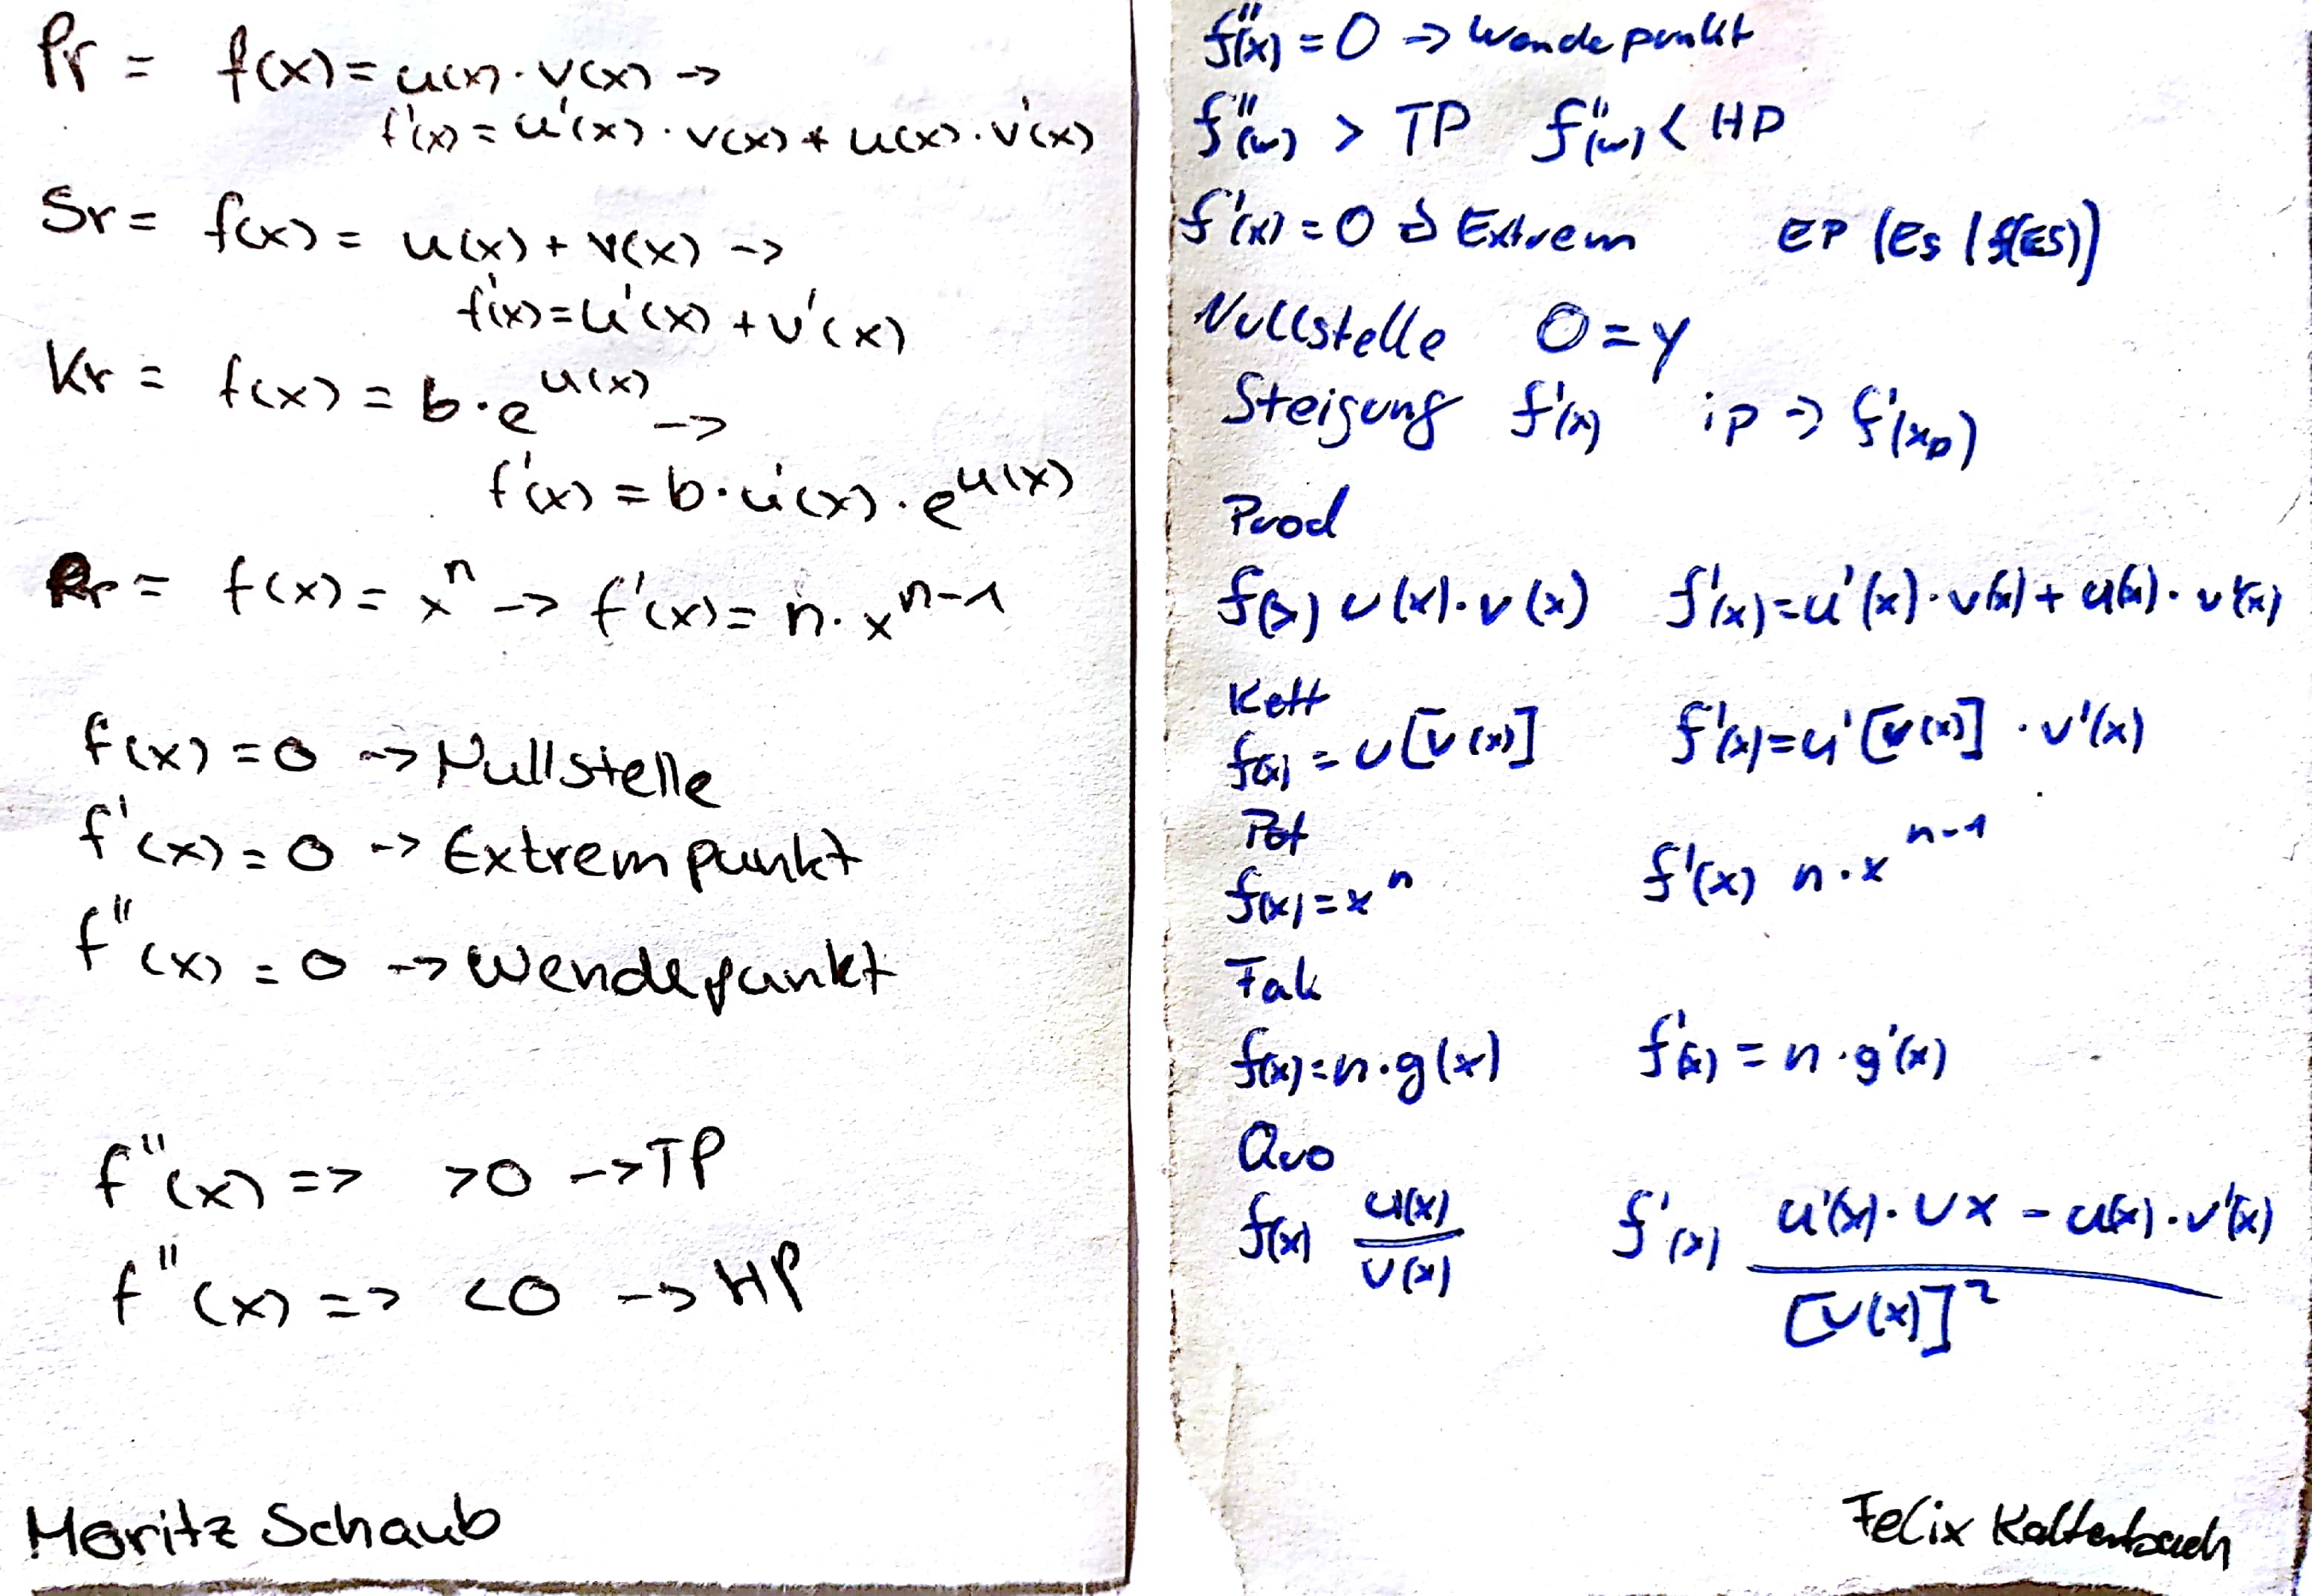 Pr = f(x) = u(x) · v(x) ->
f'(x) = u'(x) · v(x) + u(x) · v'(x)
Sr = f(x) = u(x) + v(x) ->
f'(x) = u'(x) + v'(x)
Kr = f(x) = b · e^u(x) ->
f'(x) = b · u'(x) · e^u(x)
Pr = f(x) = x^n -> f'(x) = n · x^n-1
f(x) = 0 -> Nullstelle
f'(x) = 0 -> Extrempunkt
f''(x) = 0 -> Wendepunkt
f''(x) => >0 -> TP
f''(x) => <0 -> HP
Moritz Schaub
f''(x) = 0 -> Wendepunkt
f''(w) > TP f''(w) < HP
f'(x) = 0 -> Extrem EP (ES | f(ES))
Nullstelle 0 = y
Steigung f'(x) ip -> f'(xp)
Prod
f(x) u(x) · v(x) f'(x) = u'(x) · v(x) + u(x) · v'(x)
Kett
f(x) = u[v(x)] f'(x) = u'[v(x)] · v'(x)
Pot
f(x) = x^n f'(x) n · x^n-1
Fak
f(x) = n · g(x) f'(x) = n · g'(x)
Quo
f(x) u(x)/v(x) f'(x) u'(x) · vx - u(x) · v'(x)/[v(x)]²
Felix Kaltenbach